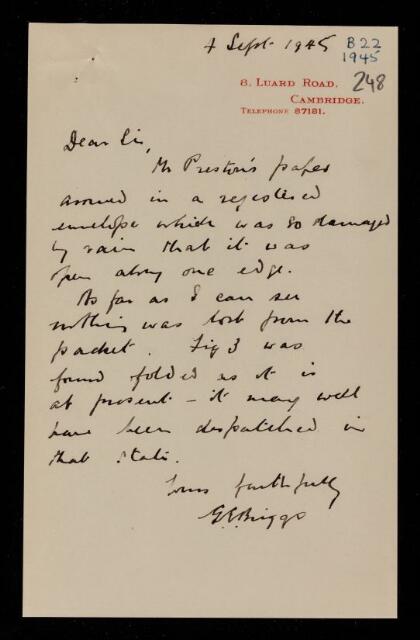 4 Sept 1945
B22
1945
248
8. LUARD ROAD,
CAMBRIDGE.
TELEPHONE 87181.
Dear Sir,
Mr Preston's paper
arrived in a registered
envelope which was so damaged
by rain that it was
open along one edge.
As far as I can see
nothing was lost from the
packet. Fig 3 was
found folded as it is
at present - it may well
have been despatched in
that state.
Yours faithfully
G.E. Briggs